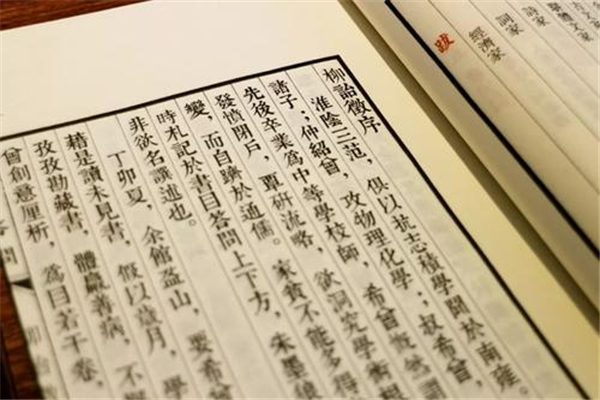 詩家
詞家
經濟家
跋
柳詒徵序
淮陰三范，俱以抗志積學聞於南雍。
諸子；仲紹曾，攻物理化學；叔希曾
先後卒業為中等學校師，希曾毅然
發憤閉戶，覃研流略，欲洞究學術根
變，而自躋於通儒。家貧不能多得
時札記於書目答問上下方，朱墨
非欲名譔述也。
丁卯夏，余館盋山，要希曾
藉是讀未見書，假以歲月，學
孜孜勘藏書，體羸善病，不
曾創意厘析，為目若干卷，